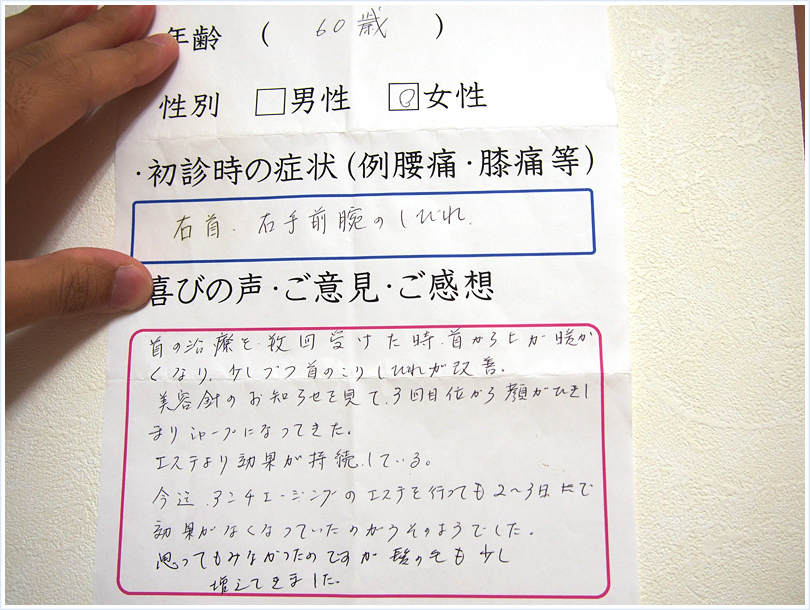 年齢 ( 60歳 )
性別 □男性 □女性
・初診時の症状(例腰痛・膝痛等)
右首.右手前腕のしびれ.
喜びの声・ご意見・ご感想
首の治療を数回受けた時.首から上が暖か
くなり.少しづつ首のこりしびれが改善.
美容針のお知らせを見て.3回目位から顔がひきし
まりシャープになってきた。
エステより効果が持続している。
今迄.アンチエージングのエステを行っても2〜3日位で
効果がなくなっていたのがうそのようでした。
思ってもみなかったのですが髪の毛も少し
増えてきました。